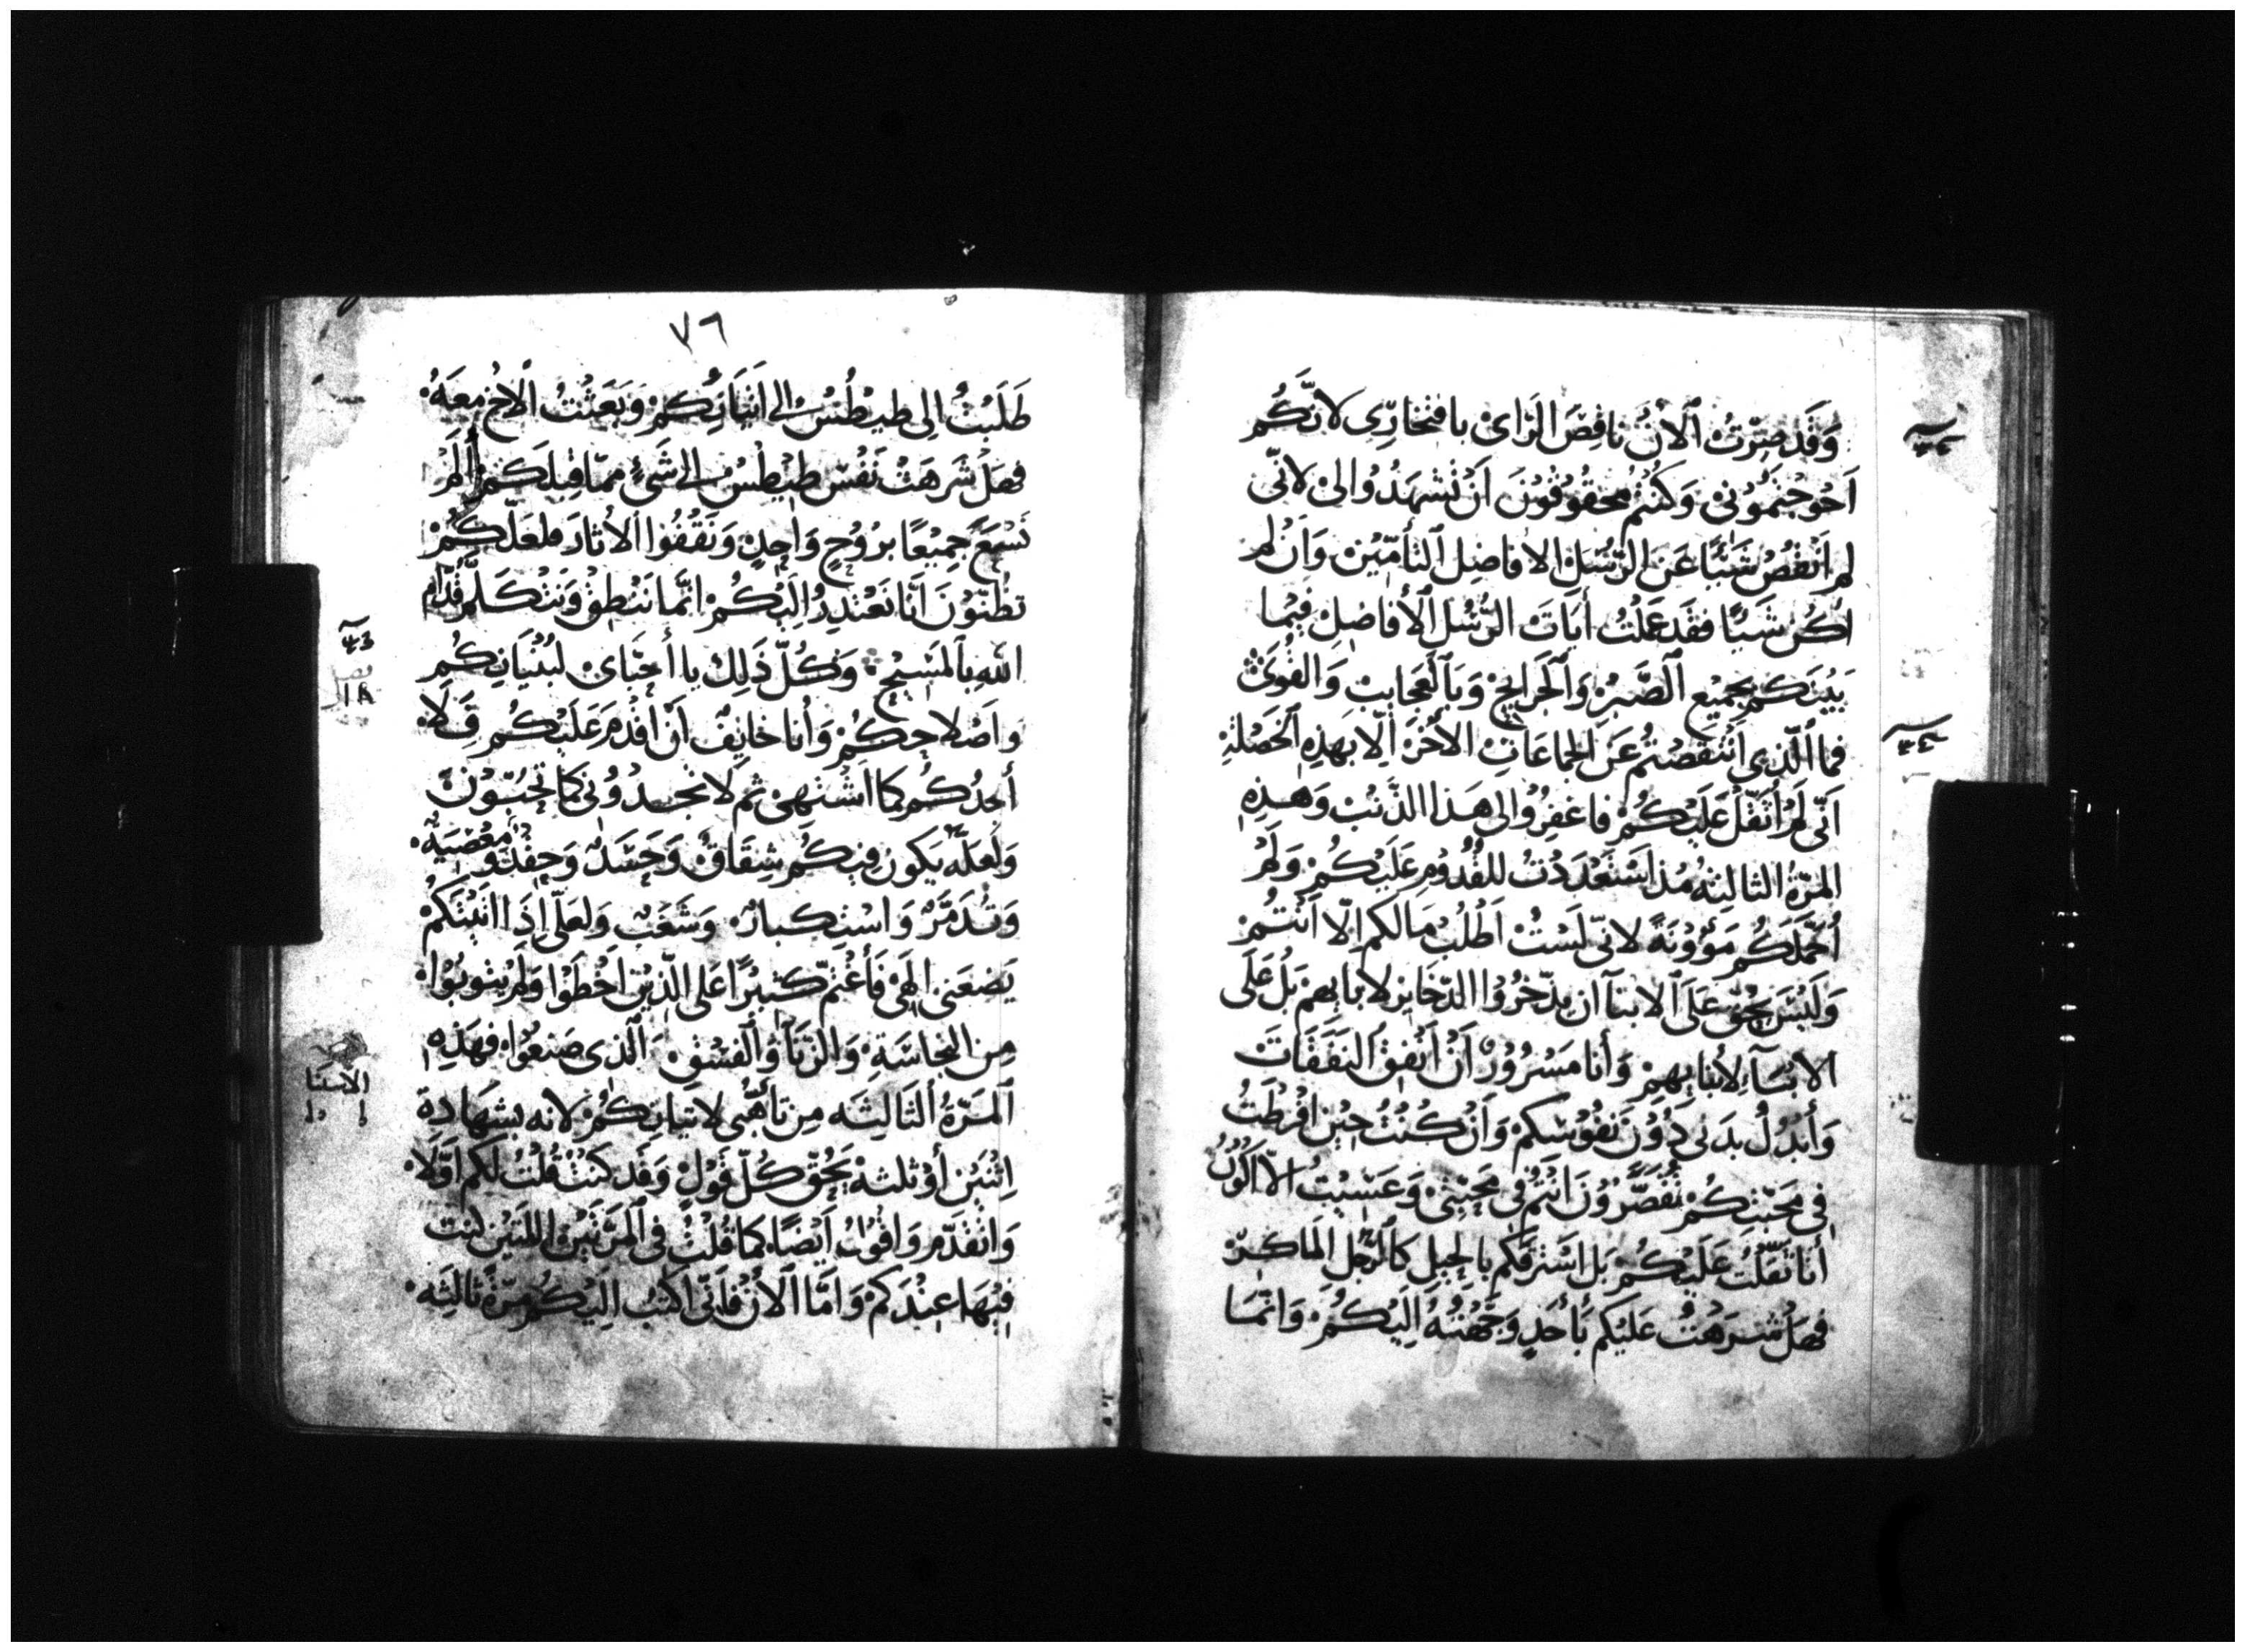 وَقَد صِرْتُ ٱلاَنَ نَاقِصَ الرَاىْ بافتخارِى لانّكُم
اَحْوجْتمُوُنىْ وَكُنْتُم محقوُقوُنَ اَنْ تَشْهَدُوُا لىْ لانّى
لم اَنقُصْ شَيْئًا عَنَ الرّسُلِ الافاضِل ٱلتأمّيْن وَاِنْ لم
اكُن شَيئًا فقَد عَملْتُ أيَاتَ الرُسُلِ ٱلأفاضِلْ فيْما
بَيْنَكم بجميْع ٱلصَّبرْ وَٱلجَرايحْ وَبَٱلعَجايبْ وَالقُوَىْ
فما الّذِى اَنْتقصْتم عَنَ الجماعَاتِ الأخَرْ اِلّا بهَذِه ٱلخَصْلةِ
اَنّى لَمْ أُثقّلْ عَلَيْكُمْ فاغفِرُوْا لى هَذا الذَنبْ وَهذِه
المرّةُ الثالِثهُ مُذ اسْتَعْدَدْتُ للقُدُوْمِ عَلَيْكُمْ وَلَمْ
اُحَمّلَكُم مَؤُوْنَةً لانّى لَسْتُ اَطْلُبْ مَالكم اِلّا اَنْتُمْ
وَلَيْسَ يحُقّ عَلَىَ ٱلابنآ ان يدّخرُوْا الدّخاير لابايهمْ بَلْ عَلَى
الابَآءِ لأبنايهِمْ وَأنا مَسْرُوْرٌ اَنْ اُنْفِقْ ٱلنَفَقَاتَ
وَأبْدُلُ بدَنى دُوْنَ نفُوْسِكمْ وَاَنْ كُنْتُ حِيْنَ اَفْرطْتُ
فِى مَحَبّتِكُمْ تُقَصّرُوْنَ اَنْتُمْ فى مَحَبّتِىْ وَعَسْيتُ الّا اَكُوْنُ
أنا ثَقّلْتُ عَلَيْكُمْ بَل اسْتَرَقْكم بالحِيلِ كَٱلرَّجُلِ المَاكِرْ
فهَلْ شرَهتُ عَلَيْكم بأَحَدٍ وَجّهْتُهُ اِلَيْكُمْ وَانّمَا
٧٦
طَلَبْتُ اِلى طيطُسْ لاِتيَانِكُم وَبَعَثْتُ ٱلاخ معَهُ
فهَلْ شَرهَتْ نَفْسَ طيطُسْ اِلى شَىٍ ممّا قِبلكم أَلَمْ
نَسْعَ جمِيْعًا برُوْحٍ وَاحِدٍ وَنَقْفُوْا الاثَارَ فلعَلّكُمْ
تظُنّوْنَ اَنّا نَعْتذِرُ اِلَيْكُمْ انّما نَنْطِقْ وَنتكَلّمْ قُدّامْ
اللهِ بٱلمسِيْحِ وَكُلّ ذَلِكَ يا أحِبّاىْ لبُنْيَانِكُم
وَاصْلاحِكُمْ وَأنا خايفٌ اَنْ أقْدُمَ عَلَيْكُم فَلَا
أجدُكُم كما اَشْتهىْ ثم لَا تجِدُوُنى كما تحِبّوْنْ
وَلَعلّه يَكون فيكُم شِقَاقٌ وَحَسَدٌ وَحِقْدٌ وَمَعْصِيَةٌ
وَتَدَمُّرٌ وَاسْتِكبارٌ وَشَغَبٌ وَلعَلّى اِذَا اتَيْتَكُمْ
يَضعَنى اِلَهىْ فَأَغْتمّ كثيْرًا عَلى الّذيْن اَخْطَوْا وَلَمْ يتُوبُوْا
مِن النجاسَةِ وَالزنَآ وَٱلفِسْقِ ٱلّذى صَنعُوْا فهَذِه
ٱلمَرّةُ الثَالِثَه مِن تأهُّبى لاتيَانِكُمْ لانه بشَهَادة
اِثنَيْن أوْ ثلثهْ يَحُقّ كُلّ قَوْلٍ وَقَد كنتُ قُلْتُ لَكم اوّلاً
وَاتقَدّم وَاقوُلْ اَيْضًا كما قُلْتُ فى ٱلمَرّتَيْنْ اللتَيْن كنت
فيْهَا عِنْدَكمْ وَامّا الاَنْ فَانّى اكتبُ اِلَيْكُم مرّةً ثالثَه
الاستثنا